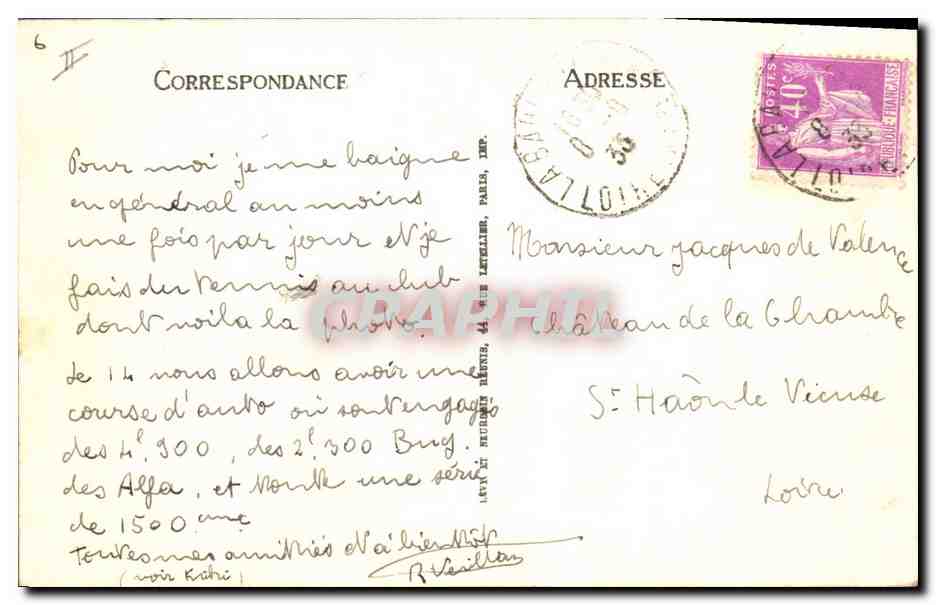 6
II
CORRESPONDANCE
ADRESSE
Pour moi je me baigne
en général au moins
une fois par jour et je
fais du tennis au club
dont voila la photo.
Le 14 nous allons avoir une
course d'auto où sont engagés
des 4l.900, des 2l.300 Bug.
des Alfa, et toute une série
de 1500 cmc
Toutes mes amitiés et à bientôt
(voir
R
LÉVY ET NEURDEIN RÉUNIS, 44, RUE LETELLIER, PARIS, IMP.
Monsieur Jacques de Valence
Château de la Chambre
St Haôn le Vieux
Loire
POSTES
40c
RÉPUBLIQUE FRANÇAISE
LA BAU
8
35
CPARAMA